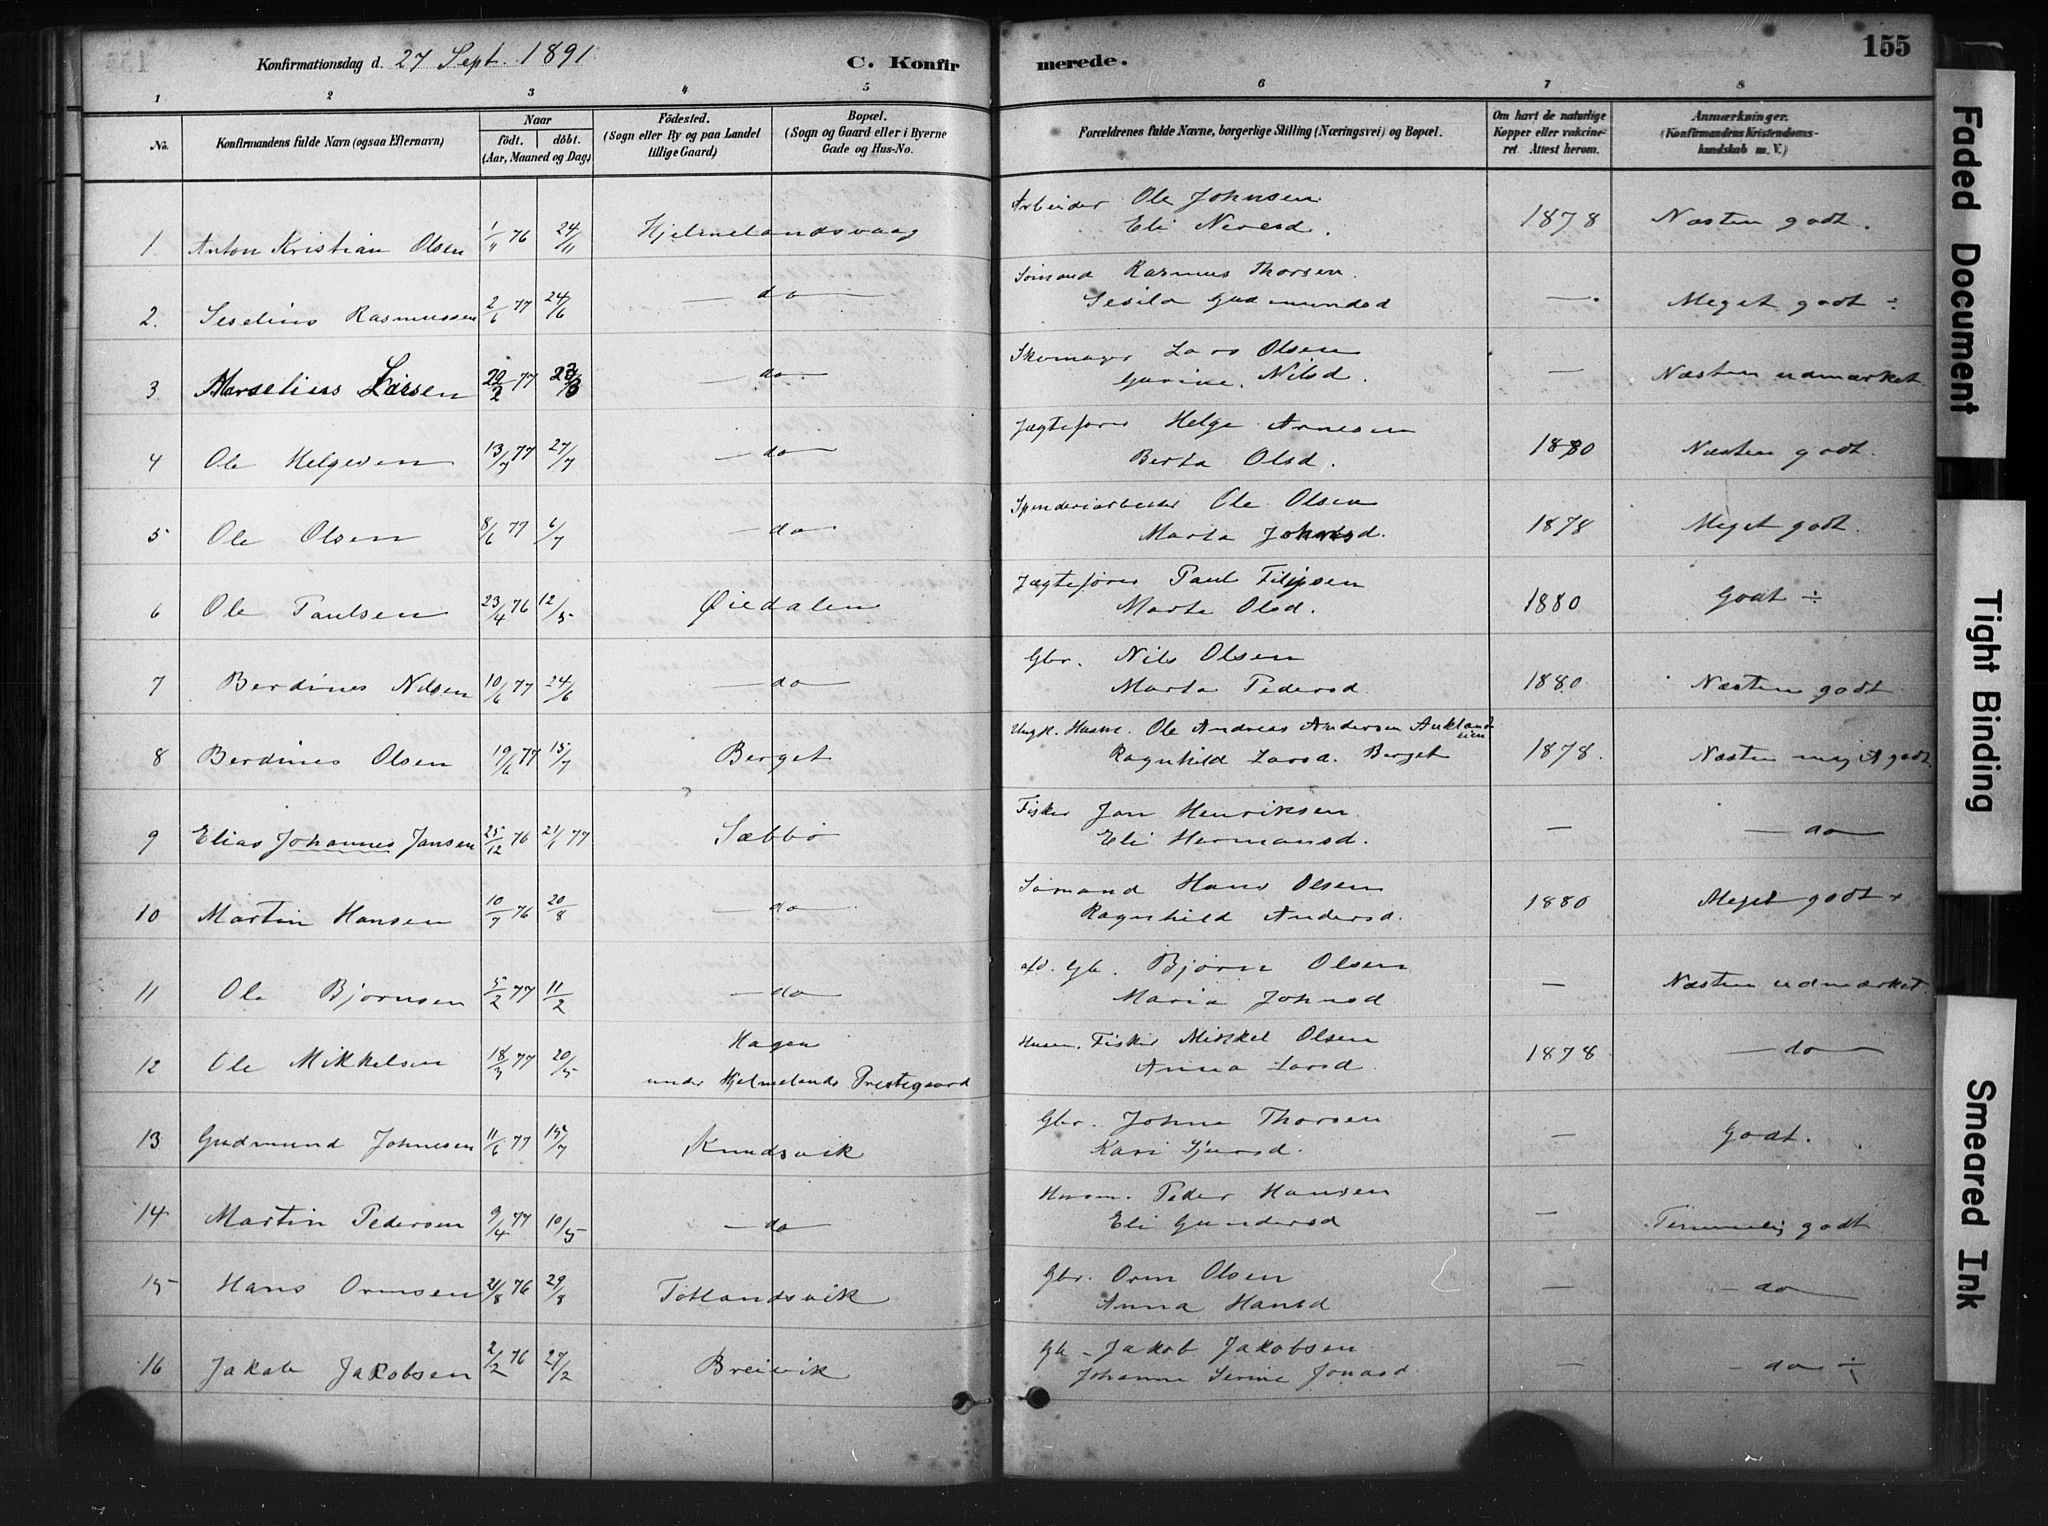 155
Konfirmationsdag d. 27 Sept. 1891
C. Konfirmerede.
1 2 3 4 5 6 7 8
No. Konfirmandens fulde Navn (ogsaa Efternavn) Naar födt. döbt. (Aar, Maaned og Dag) Födested. (Sogn eller By og paa Landet tillige Gaard) Bopæl. (Sogn og Gaard eller i Byerne Gade og Hus-No. Forældrenes fulde Navne, borgerlige Stilling (Næringsvei) og Bopæl. Om havt de naturlige Kopper eller vakcineret Attest herom. Anmærkninger. (Konfirmandens Kristendomskundskab m. V.)
1 Anton Kristian Olsen 1/11 76 24/11 Hjelmelandsvaag Arbeider Ole Johnsen 1878 Næsten godt.
Eli
2. Seselius Rasmussen 2/6 77 24/6 — do — Sømand Rasmus Thorsen — Meget godt ÷
Sesila Gudmundsd
3 Marselius Larsen 77 — do. Skomager Lars Olsen — Næsten udmærket
Gurine Nilsd.
4 Ole Helgesen 13/7 77 27/7 — do Jægtefører Helge Arnesen 1880 Næsten godt.
Berta Olsd.
5 Ole Olsen 8/6 77 6/7 — do. Ole Olsen 1878 Meget godt.
Marta Johnsd.
6 Ole Paulsen 23/4 76 12/5 Øiedalen Jægtefører Paul Filipsen 1880 Godt ÷
Marta Olsd.
7 Berdines Nilsen 10/6 77 24/6 — do Gbr. Nils Olsen 1880 Næsten godt
Marta Pedersd
8 Berdines Olsen 19/6 77 15/7 Berget Ungk. Husm. Ole Andreas Andersen 1878. Næsten meget godt
Ragnhild Larsd. Berget
9 Elias Johannes Jansen 25/12 76 21/1 77 Sæbbø Fisker Jan Henriksen — — do
Eli Hermansd.
10 Martin Hansen 10/7 76 20/8 — do Sømand Hans Olsen 1880 Meget godt +
Ragnhild Andersd.
11 Ole Bjørnsen 5/2 77 11/2 — do afd. Gb. Bjørn Olsen — Næsten udmærket.
Maria Johnsd
12 Ole Mikkelsen 18/3 77 20/5 Hagen Husm. Fisker Mikkel Olsen 1878 — do —
under Hjelmelands Prestegaard Anna Larsd.
13 Gudmund Johnesen 11/6 77 15/7 Knudsvik Gbr. Johne Thorsen — Godt.
Kari Sjursd.
14 Martin Pedersen 9/4 77 10/5 — do Husm. Peder Hansen — Temmelig godt
Eli Gundersd
15 Hans Ormsen 21/8 76 29/8 Tøtlandsvik Gbr. Orm Olsen — — do
Anna Hansd
16 Jakob Jakobsen 2/2 76 27/2 Breivik Gb. Jakob Jakobsen — — do ÷
Johanne Serine Jonasd
Faded Document
Tight Binding
Smeared Ink